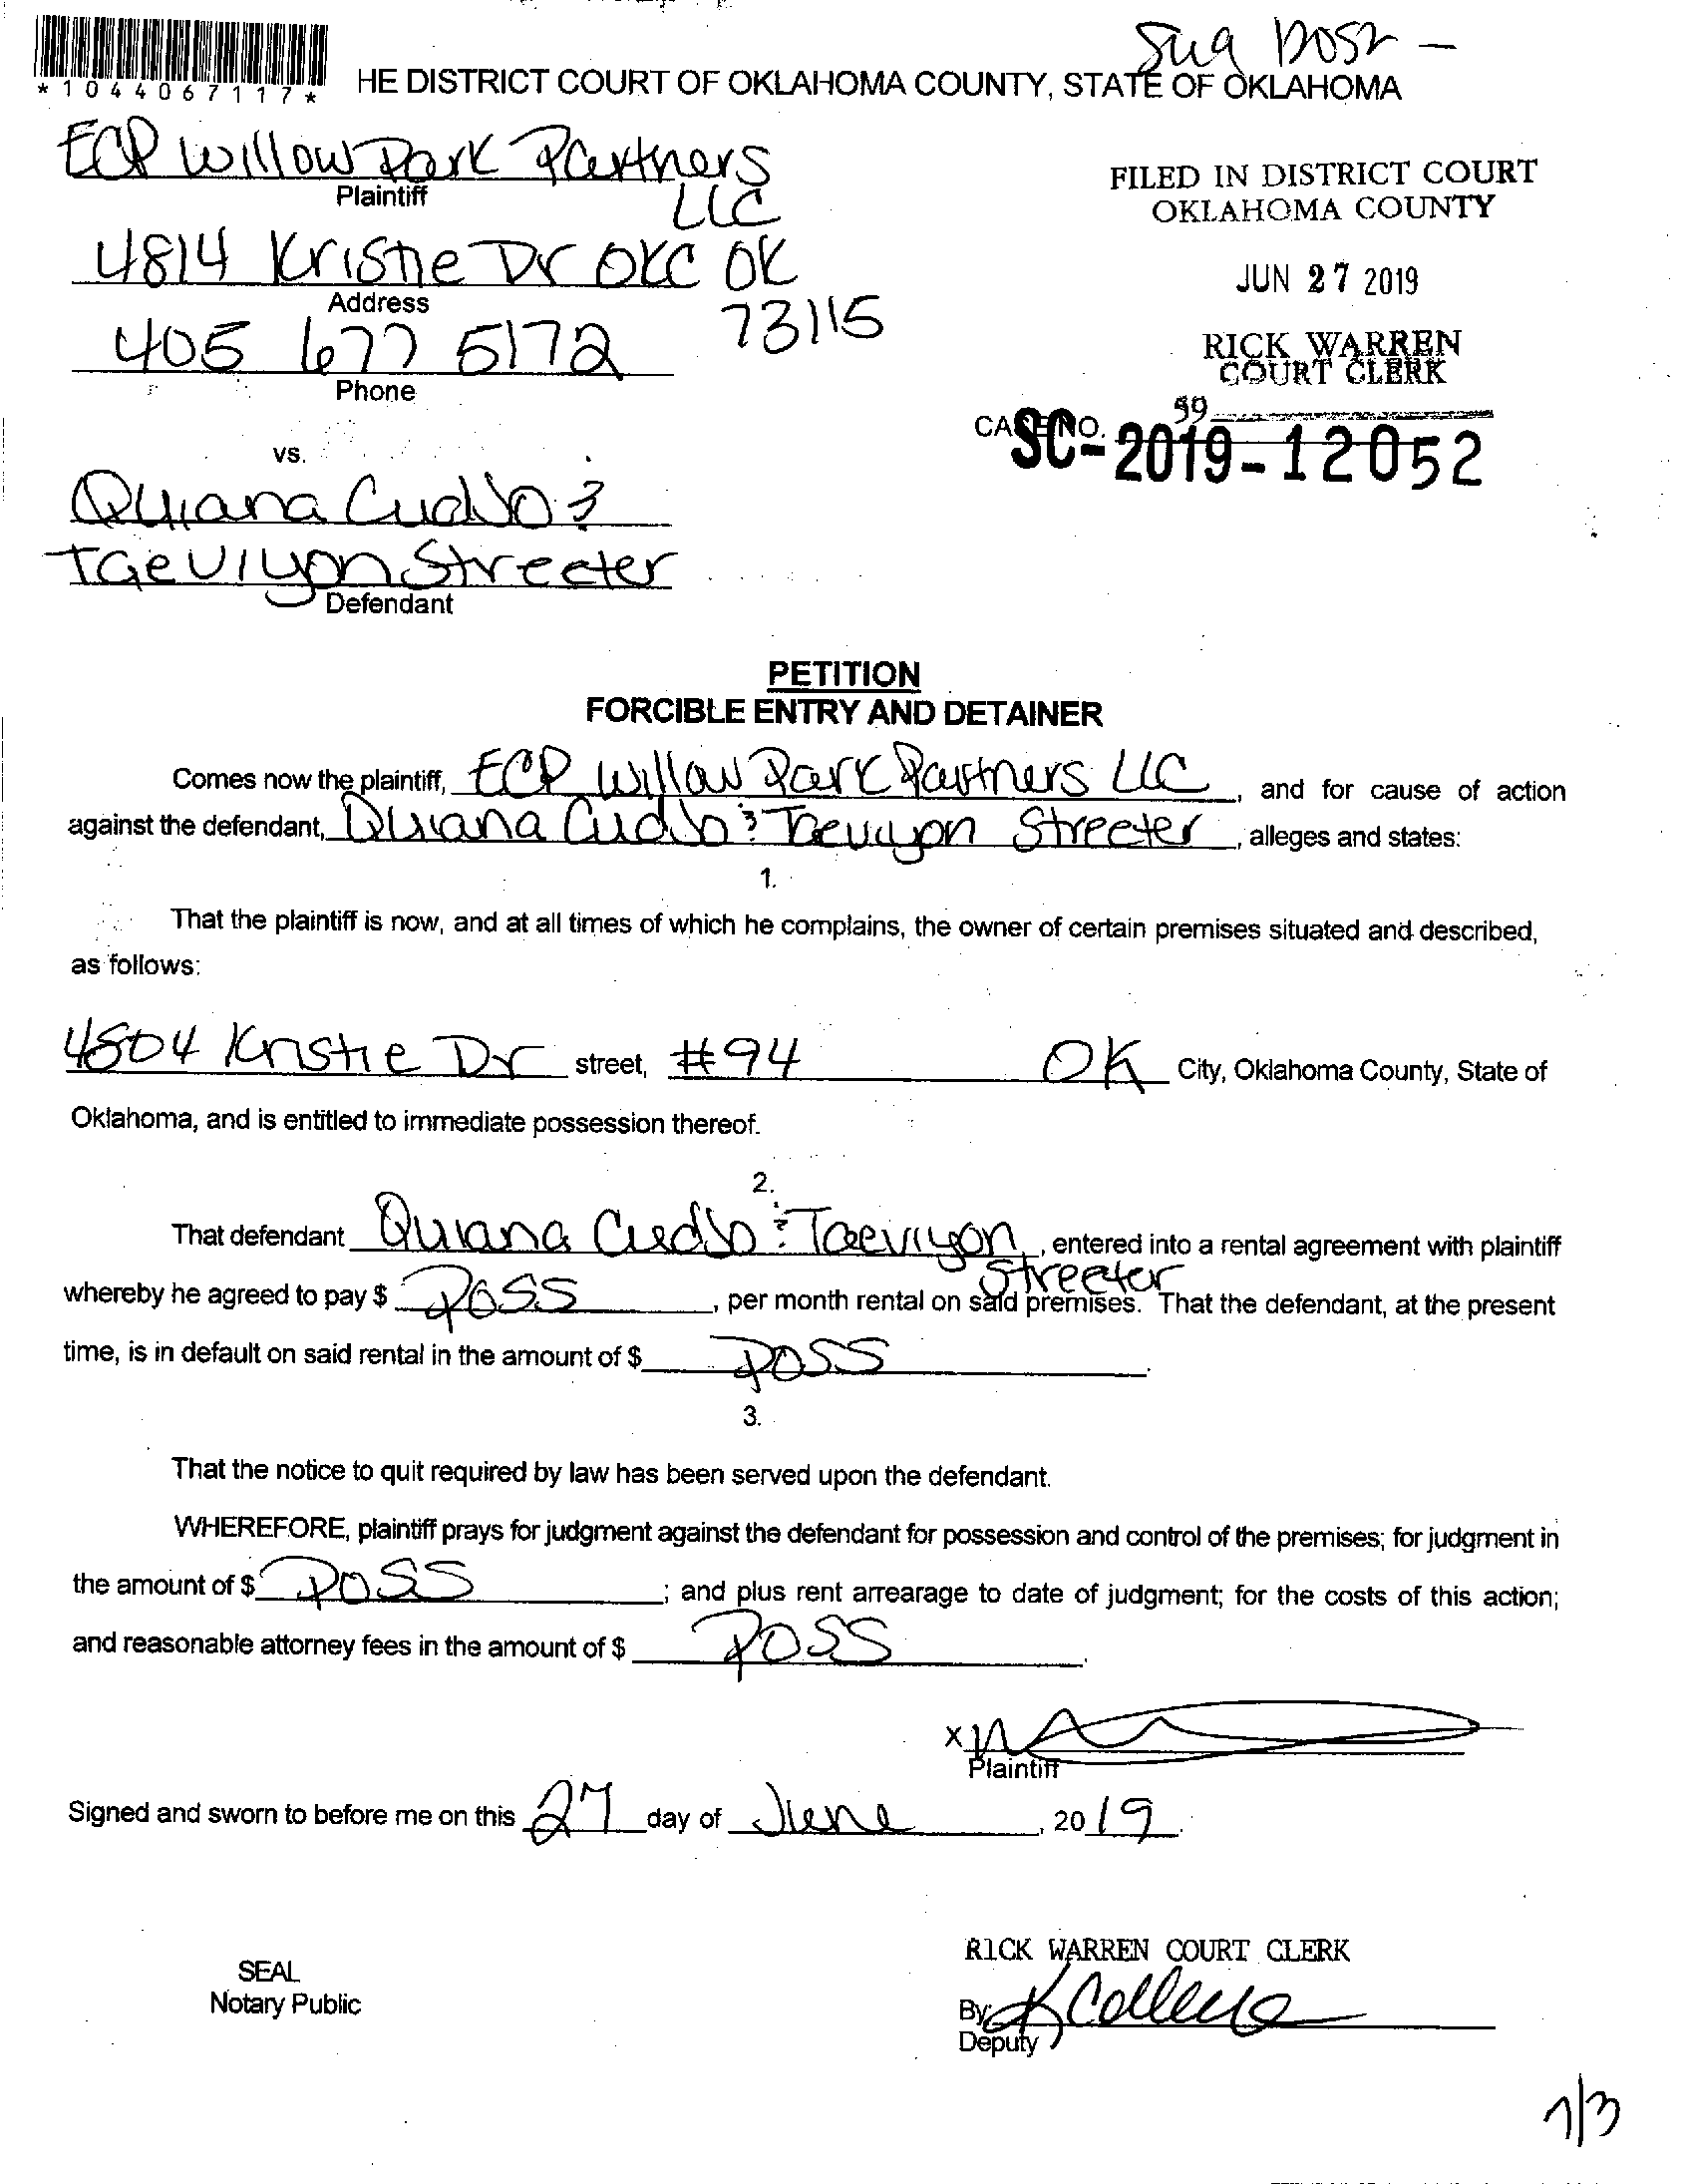 *1044067117*
HE DISTRICT COURT OF OKLAHOMA COUNTY, STATE OF OKLAHOMA
ECP Willow Park Partners
LLC
Plaintiff
4814 Kristie Dr OKC OK
73115
Address
405 677 5172
Phone
FILED IN DISTRICT COURT
OKLAHOMA COUNTY
JUN 27 2019
RICK WARREN
COURT CLERK
59
CASE NO.
SC-2019-12052
vs.
Quiana Cudjo &
Taeviyon Streeter
Defendant
PETITION
FORCIBLE ENTRY AND DETAINER
Comes now the plaintiff, ECP Willow Park Partners LLC, and for cause of action
against the defendant, Quiana Cudjo & Taeviyon Streeter, alleges and states:
1.
That the plaintiff is now, and at all times of which he complains, the owner of certain premises situated and described,
as follows:
4804 Kristie Dr street, #94 OK City, Oklahoma County, State of
Oklahoma, and is entitled to immediate possession thereof.
2.
That defendant Quiana Cudjo & Taeviyon Streeter, entered into a rental agreement with plaintiff
whereby he agreed to pay $ POSS, per month rental on said premises. That the defendant, at the present
time, is in default on said rental in the amount of $ POSS.
3.
That the notice to quit required by law has been served upon the defendant.
WHEREFORE, plaintiff prays for judgment against the defendant for possession and control of the premises; for judgment in
the amount of $ POSS; and plus rent arrearage to date of judgment; for the costs of this action;
and reasonable attorney fees in the amount of $ POSS.
X
Plaintiff
Signed and sworn to before me on this 27 day of June, 2019.
SEAL
Notary Public
RICK WARREN COURT CLERK
By:
Deputy
7/3